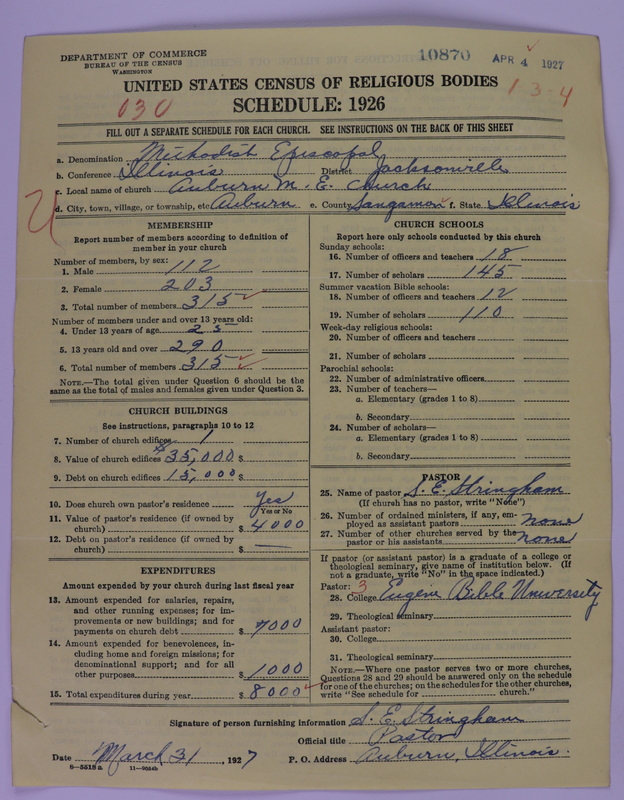 DEPARTMENT OF COMMERCE
BUREAU OF THE CENSUS
WASHINGTON
10870 APR 4 1927
UNITED STATES CENSUS OF RELIGIOUS BODIES
1 3-4
030
SCHEDULE: 1926
FILL OUT A SEPARATE SCHEDULE FOR EACH CHURCH. SEE INSTRUCTIONS ON THE BACK OF THIS SHEET
a. Denomination Methodist Episcopal
b. Conference Illinois District Jacksonville
c. Local name of church Auburn M. E. Church
d. City, town, village, or township, etc. Auburn e. County Sangamon f. State Illinois
MEMBERSHIP
Report number of members according to definition of
member in your church
Number of members, by sex:
1. Male 112
2. Female 203
3. Total number of members 315
Number of members under and over 13 years old:
4. Under 13 years of age 25
5. 13 years old and over 290
6. Total number of members 315
NOTE.—The total given under Question 6 should be the
same as the total of males and females given under Question 3.
CHURCH BUILDINGS
See instructions, paragraphs 10 to 12
7. Number of church edifices 1
8. Value of church edifices $35,000 $
9. Debt on church edifices 15,000 $
10. Does church own pastor's residence Yes
Yes or No
11. Value of pastor's residence (if owned by
church) $ 4000
12. Debt on pastor's residence (if owned by
church) $ —
EXPENDITURES
Amount expended by your church during last fiscal year
13. Amount expended for salaries, repairs,
and other running expenses; for im-
provements or new buildings; and for
payments on church debt $ 7000
14. Amount expended for benevolences, in-
cluding home and foreign missions; for
denominational support; and for all
other purposes $ 1000
15. Total expenditures during year $ 8000
CHURCH SCHOOLS
Report here only schools conducted by this church
Sunday schools:
16. Number of officers and teachers 18
17. Number of scholars 145
Summer vacation Bible schools:
18. Number of officers and teachers 12
19. Number of scholars 110
Week-day religious schools:
20. Number of officers and teachers
21. Number of scholars
Parochial schools:
22. Number of administrative officers
23. Number of teachers—
a. Elementary (grades 1 to 8)
b. Secondary
24. Number of scholars—
a. Elementary (grades 1 to 8)
b. Secondary
PASTOR
25. Name of pastor S. E. Stringham
(If church has no pastor, write "None")
26. Number of ordained ministers, if any, em-
ployed as assistant pastors none
27. Number of other churches served by the
pastor or his assistants none
If pastor (or assistant pastor) is a graduate of a college or
theological seminary, give name of institution below. (If
not a graduate, write "No" in the space indicated.)
Pastor: 3
28. College Eugene Bible University
29. Theological seminary
Assistant pastor:
30. College
31. Theological seminary
NOTE.—Where one pastor serves two or more churches,
Questions 28 and 29 should be answered only on the schedule
for one of the churches; on the schedules for the other churches,
write "See schedule for church."
Signature of person furnishing information S. E. Stringham
Official title Pastor
Date March 31, 1927 P. O. Address Auburn, Illinois.
8—5518a 11—9034b